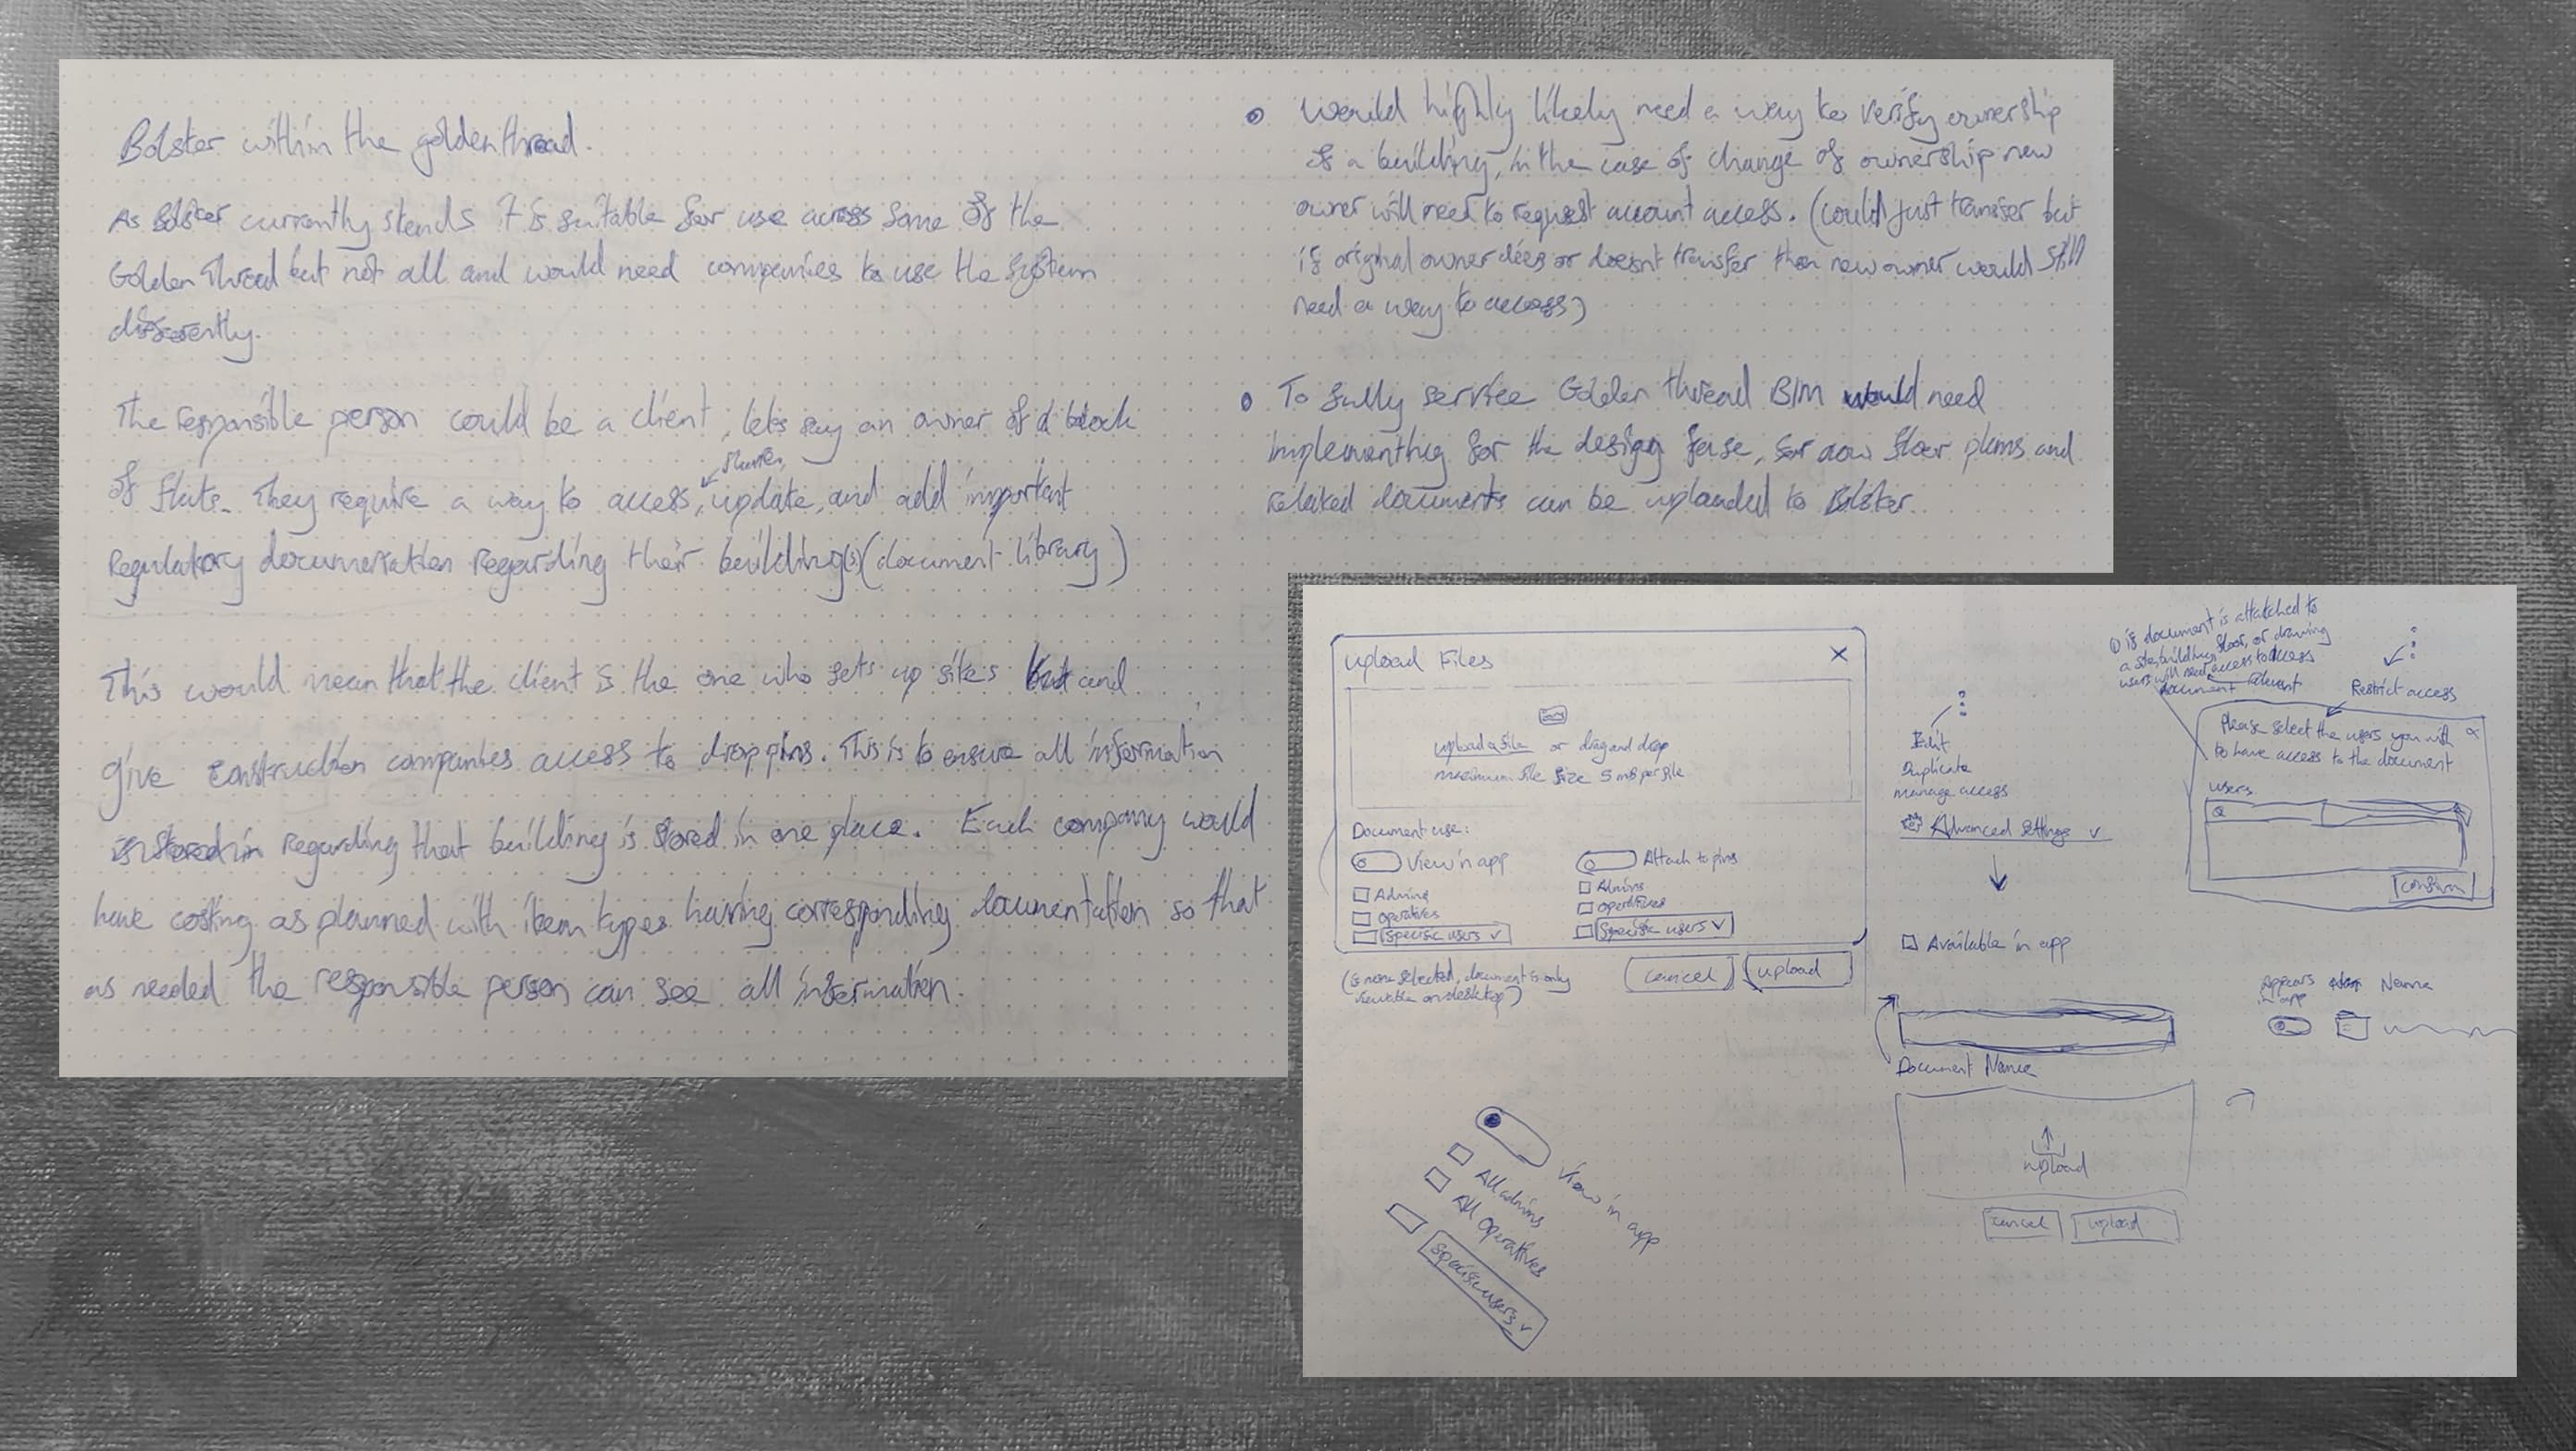 Bolster within the golden thread.
As Bolster currently stands it is suitable for use across some of the
Golden Thread but not all and would need companies to use the system
differently.
The responsible person could be a client, lets say an owner of a block
of flats. They require a way to access, update, and add important
Regulatory documentation regarding their building(s) (document library)
This would mean that the client is the one who sets up sites but and
give construction companies access to drop pins. This is to ensure all information
is stored in regarding that building is stored in one place. Each company would
have costing as planned with item types having corresponding documentation so that
as needed the responsible person can see all information.
Would highly likely need a way to verify ownership
of a building, in the case of change of ownership new
owner will need to request account access. (could just transfer but
if original owner dies or doesnt transfer then new owner would still
need a way to access)
To fully service Golden thread BIM would need
implementing for the design fase, for now floor plans and
related documents can be uploaded to Bolster.
Upload Files
upload a file or drag and drop
maximum file size 5 mB per file
Document use:
View in app
Admins
Operatives
Specific users
Attach to pins
Admins
Operatives
Specific users
(if none selected, document is only
viewable on desktop)
cancel
upload
View in app
All admins
All Operatives
Specific users
Edit
Duplicate
manage access
Advanced Settings
Available in app
Document Name
upload
cancel
upload
if document is attatched to
a site, building, floor, or drawing
users will need access to access
document relevant
Restrict access
Please select the users you wish
to have access to the document
users
confirm
Appears
in app
Name